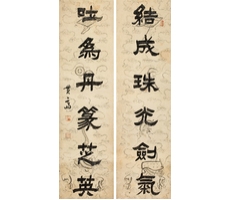 結成珠光劍氣
吐為丹篆芝英